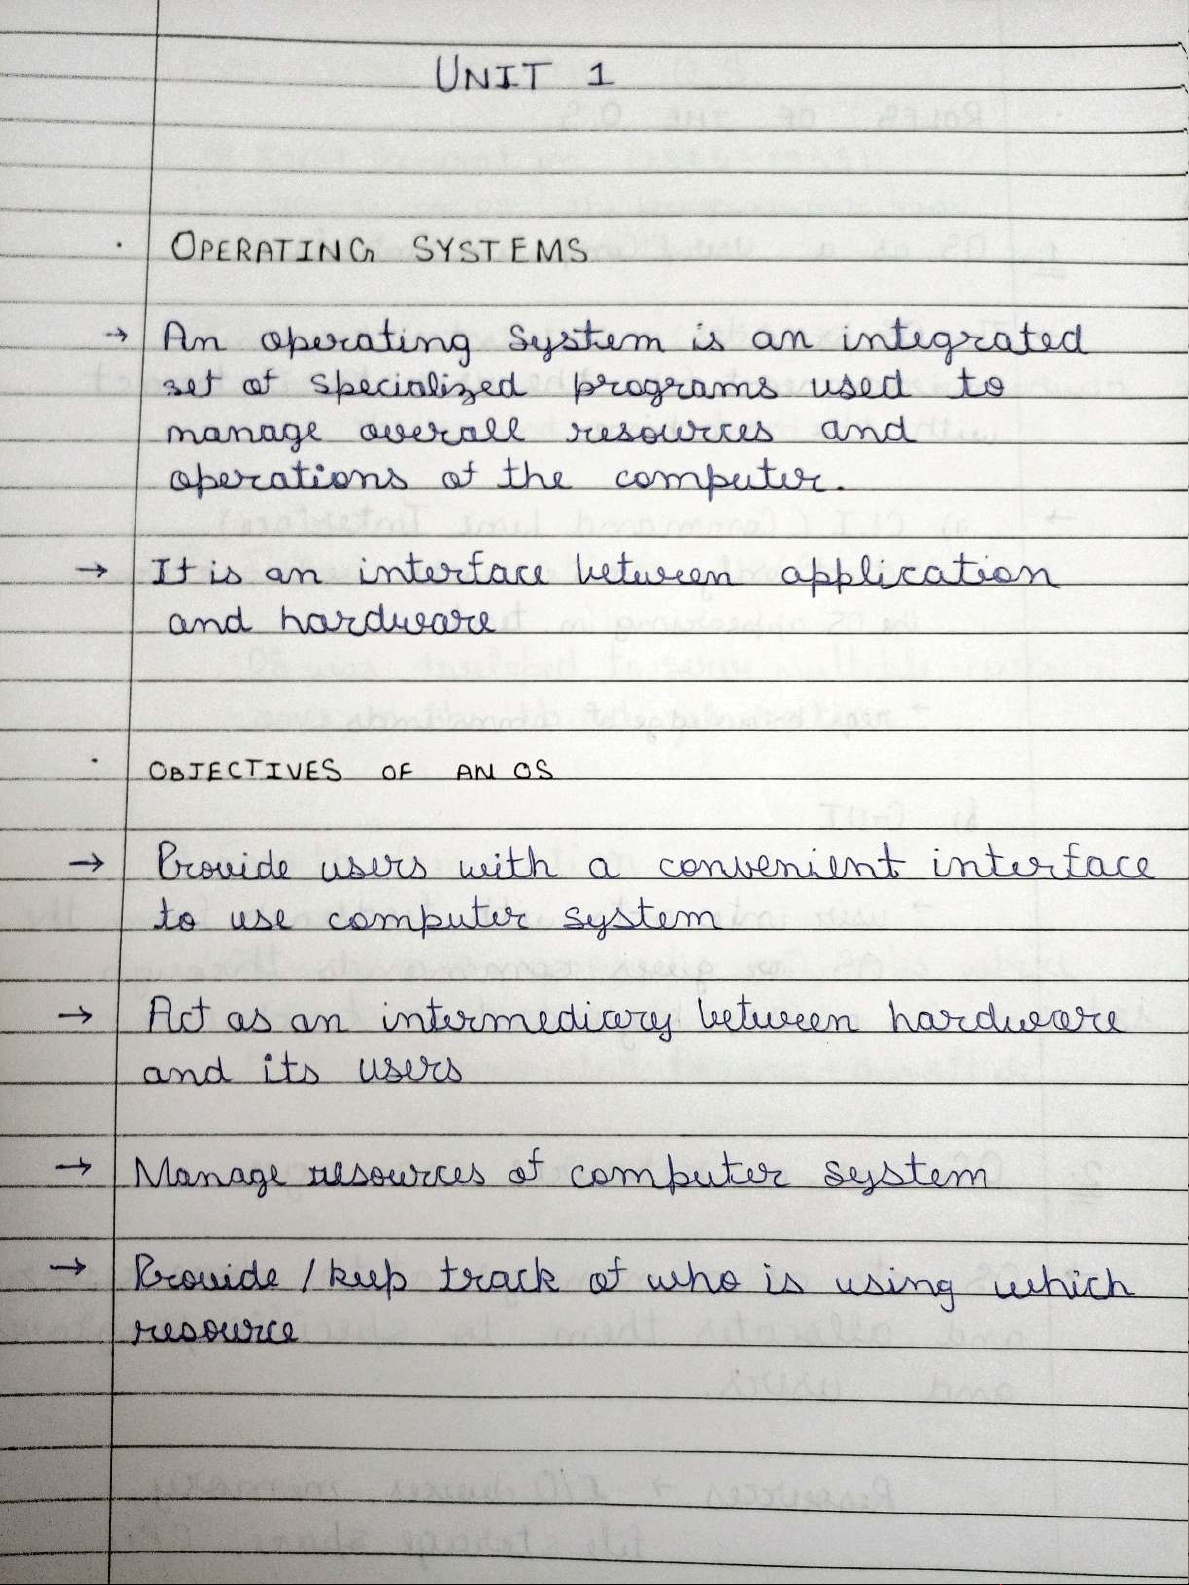 UNIT 1
· OPERATING SYSTEMS
→ An operating System is an integrated
set of specialized programs used to
manage overall resources and
operations of the computer.
→ It is an interface between application
and hardware
· OBJECTIVES OF AN OS
→ Provide users with a convenient interface
to use computer system
→ Act as an intermediary between hardware
and its users
→ Manage resources of computer system
→ Provide / keep track of who is using which
resource